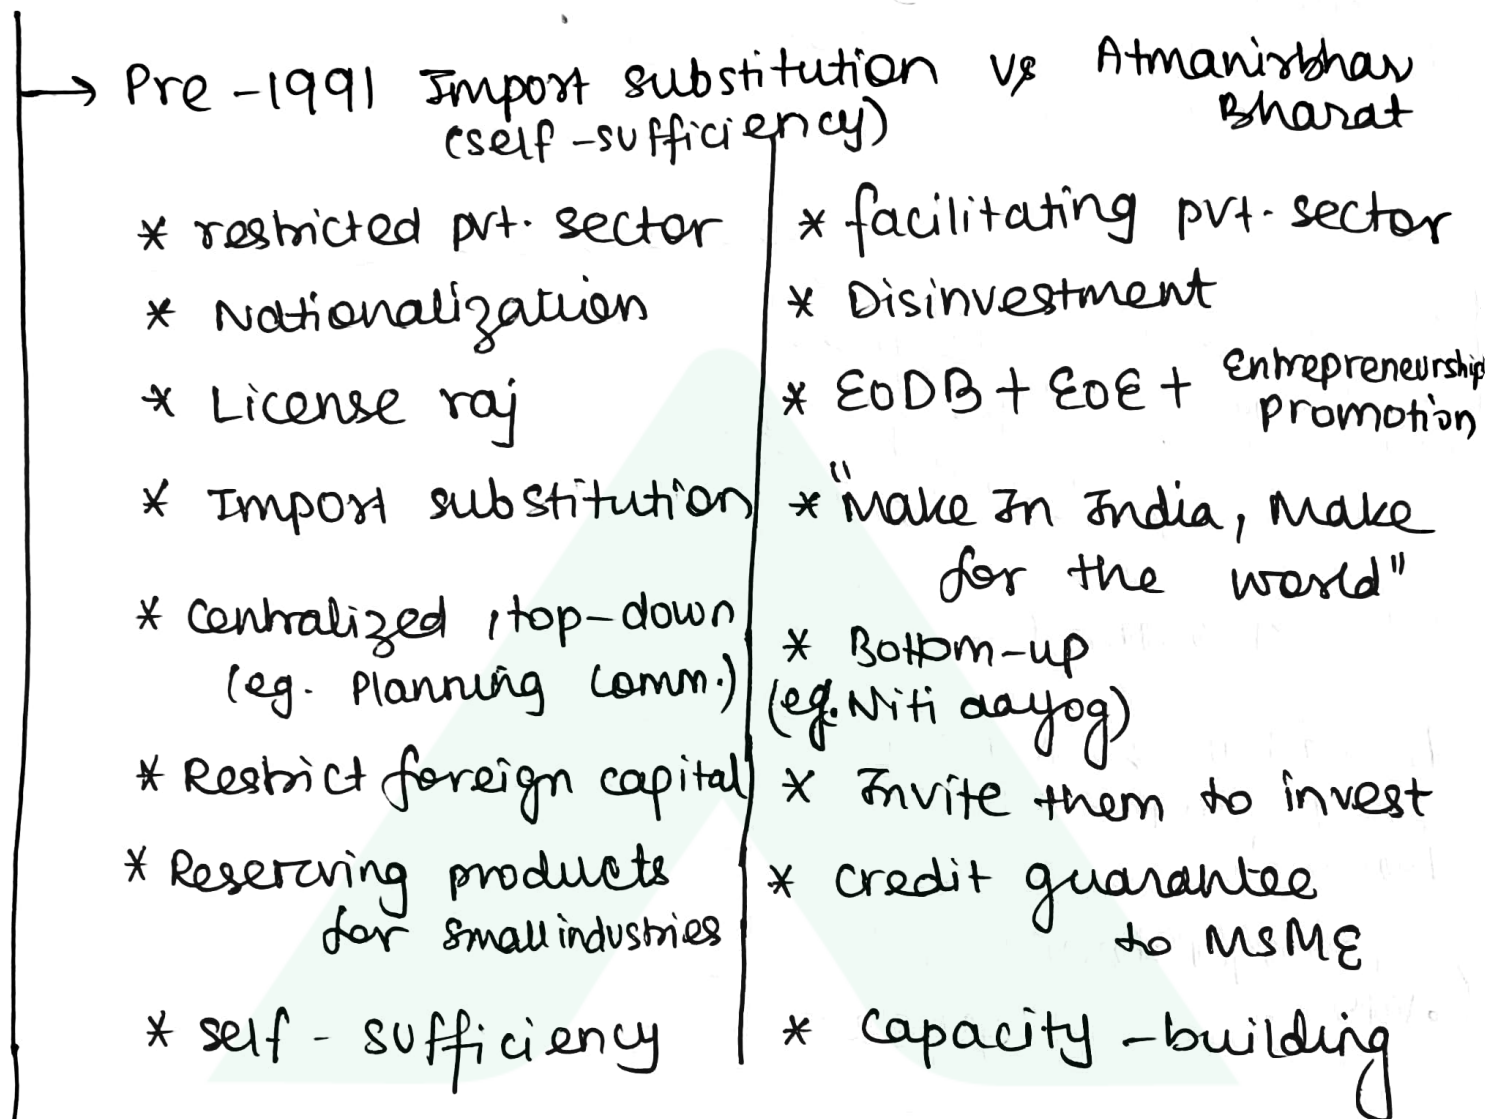 → Pre-1991 Import substitution vs Atmanirbhar
(self-sufficiency)
Bharat
* restricted pvt. sector
* Nationalization
* License raj
* Import substitution
* Centralized, top-down
(eg. Planning Comm.)
* Restrict foreign capital
* Reserving products
for small industries
* self-sufficiency
* facilitating pvt. sector
* Disinvestment
* EODB + EOE + Entrepreneurship
promotion
* "Make In India, Make
for the world"
* Bottom-up
(eg. Niti aayog)
* Invite them to invest
* credit guarantee
to MSME
* capacity-building